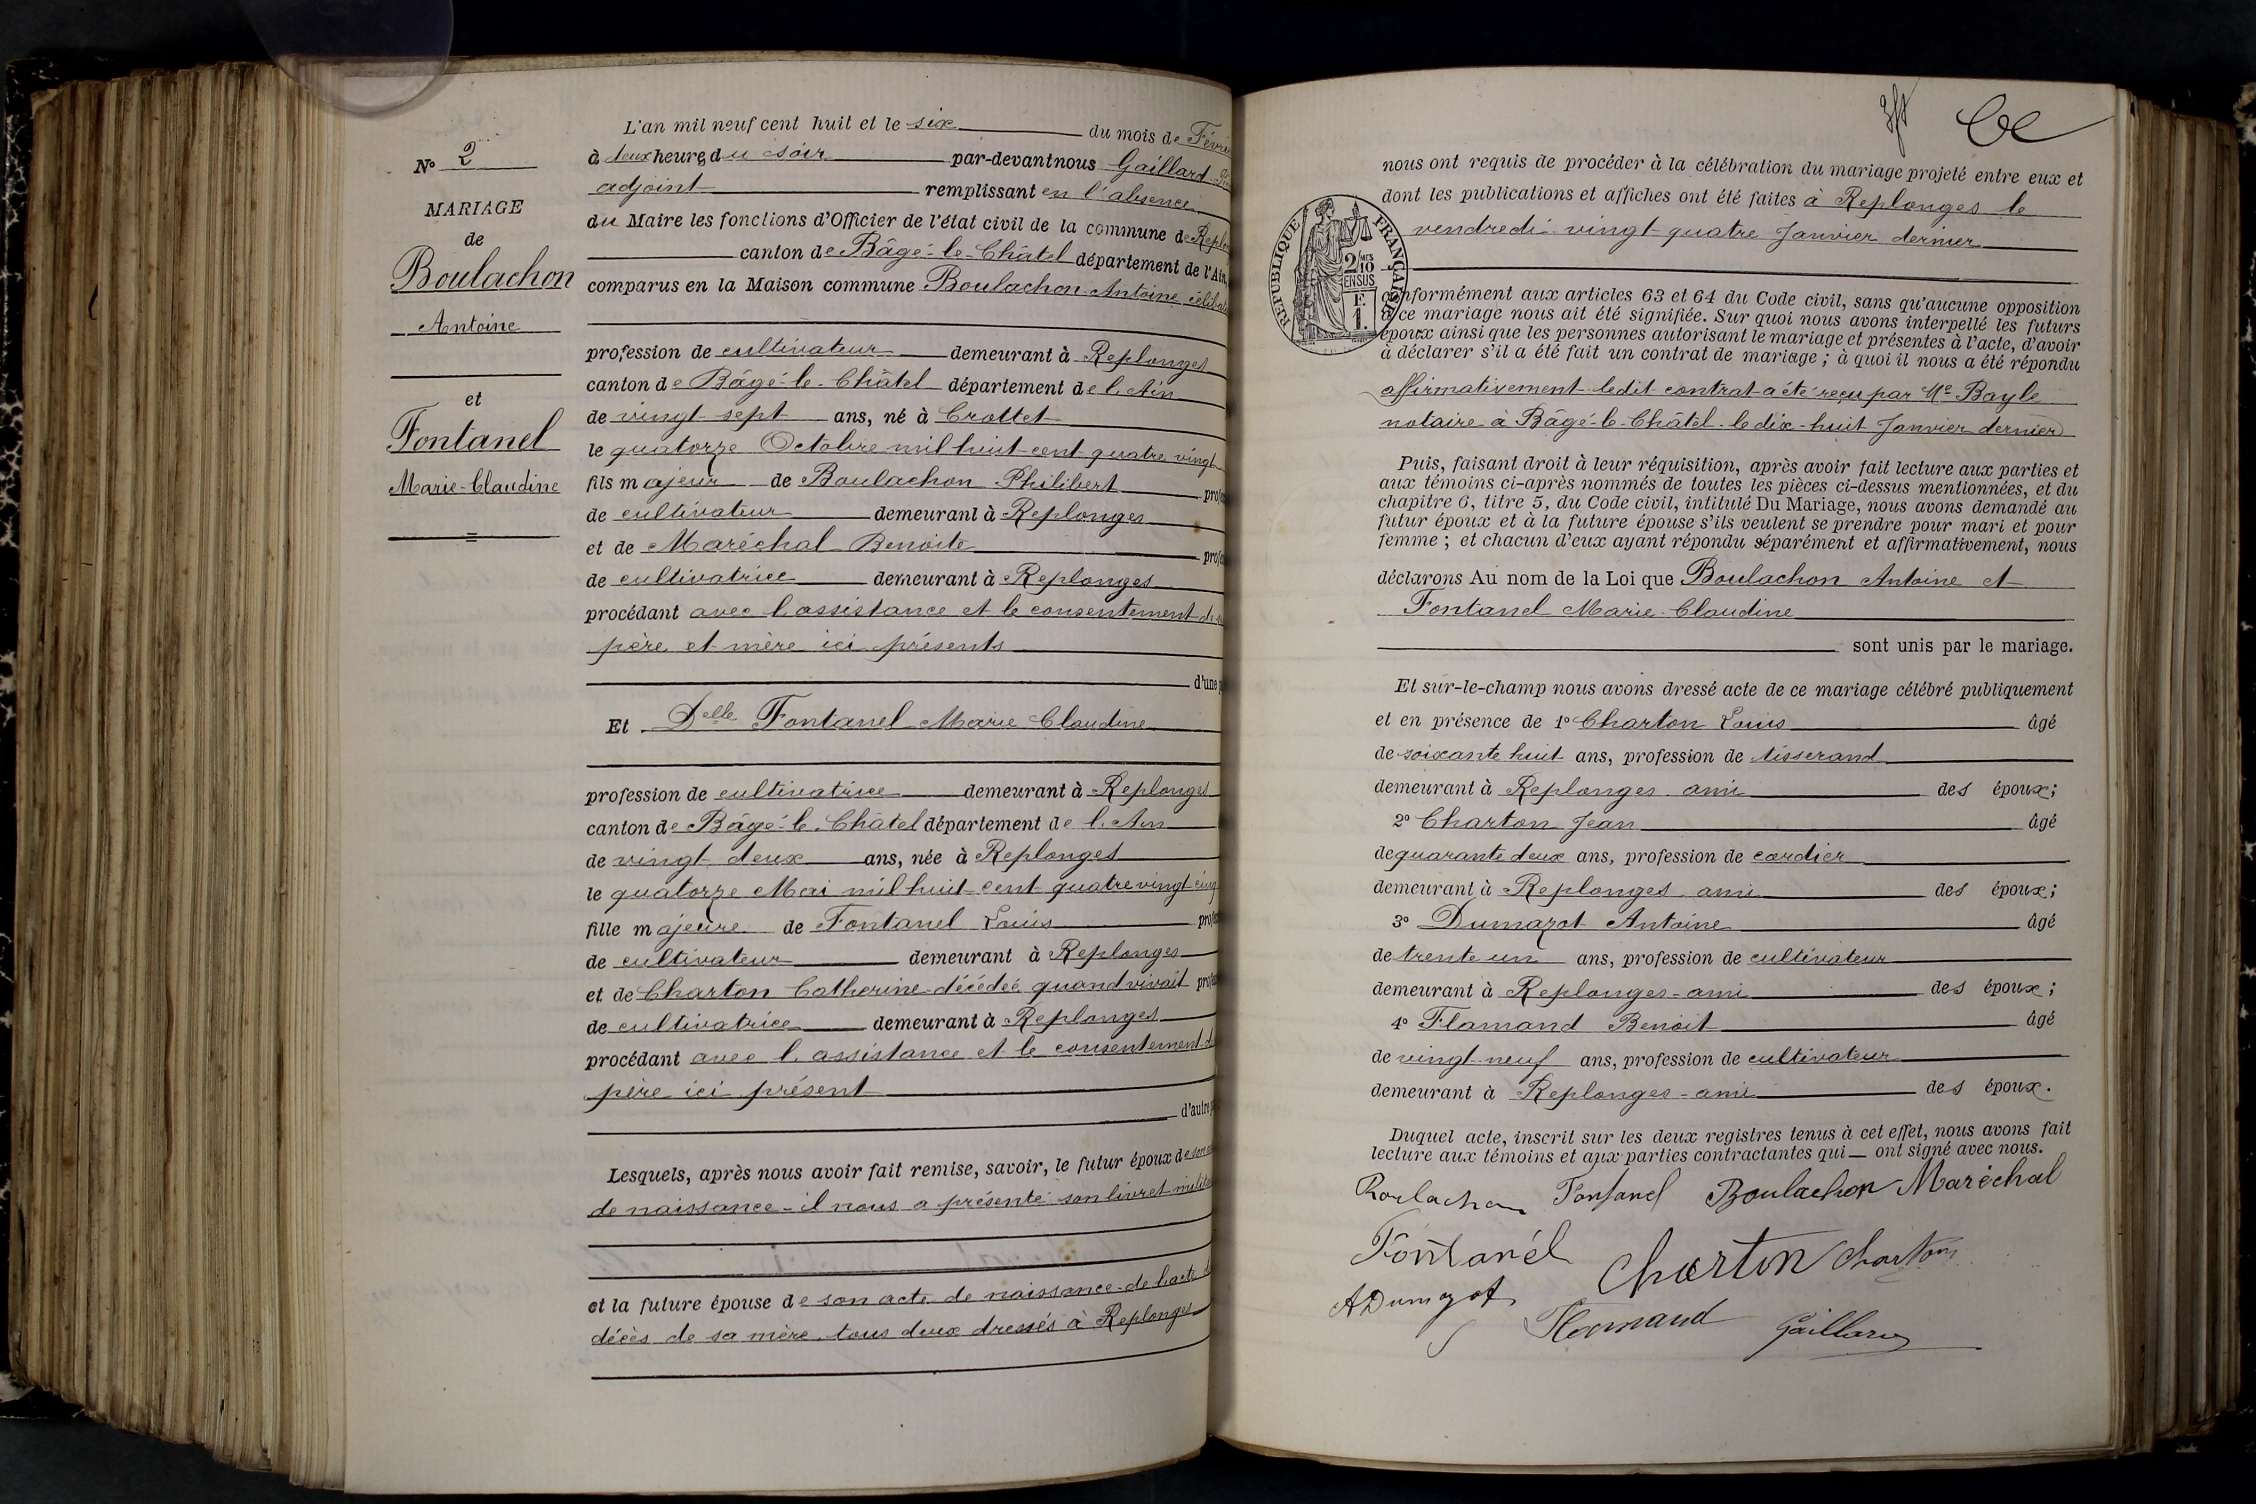 N° 2
MARIAGE
de
Boulachon
Antoine
et
Fontanel
Marie-Claudine
L'an mil neuf cent huit et le six du mois de Févri
à deux heures du soir par-devant nous Gaillard
adjoint remplissant en l'absence
du Maire les fonctions d'Officier de l'état civil de la commune de Replon
canton de Bâgé-le-Châtel département de l'Ain,
comparus en la Maison commune Boulachon Antoine célibat
profession de cultivateur demeurant à Replonges
canton de Bâgé-le-Châtel département de l'Ain
de vingt sept ans, né à Crottet
le quatorze Octobre mil huit cent quatre vingt
fils majeur de Boulachon Philibert prof
de cultivateur demeurant à Replonges
et de Maréchal Benoite profe
de cultivatrice demeurant à Replonges
procédant avec l'assistance et le consentement de
père et mère ici présents
d'une p
Et Delle Fontanel Marie Claudine
profession de cultivatrice demeurant à Replonges
canton de Bâgé-le-Châtel département de l'Ain
de vingt deux ans, née à Replonges
le quatorze Mai mil huit cent quatre vingt cinq
fille majeure de Fontanel Louis profe
de cultivateur demeurant à Replonges
et de Charton Catherine décédée quand vivait profe
de cultivatrice demeurant à Replonges
procédant avec l'assistance et le consentement d
père ici présent
d'autre p
Lesquels, après nous avoir fait remise, savoir, le futur époux de son
de naissance - il nous a présenté son livret milit
et la future épouse de son acte de naissance - de l'acte de
décès de sa mère tous deux dressés à Replonges
nous ont requis de procéder à la célébration du mariage projeté entre eux et
dont les publications et affiches ont été faites à Replonges le
vendredi vingt quatre Janvier dernier
RÉPUBLIQUE FRANÇAISE
2/10
EN SUS
F.
1.
conformément aux articles 63 et 64 du Code civil, sans qu'aucune opposition
à ce mariage nous ait été signifiée. Sur quoi nous avons interpellé les futurs
époux ainsi que les personnes autorisant le mariage et présentes à l'acte, d'avoir
à déclarer s'il a été fait un contrat de mariage ; à quoi il nous a été répondu
affirmativement ledit contrat a été reçu par Me Bayle
notaire à Bâgé-le-Châtel le dix-huit Janvier dernier
Puis, faisant droit à leur réquisition, après avoir fait lecture aux parties et
aux témoins ci-après nommés de toutes les pièces ci-dessus mentionnées, et du
chapitre 6, titre 5, du Code civil, intitulé Du Mariage, nous avons demandé au
futur époux et à la future épouse s'ils veulent se prendre pour mari et pour
femme ; et chacun d'eux ayant répondu séparément et affirmativement, nous
déclarons Au nom de la Loi que Boulachon Antoine et
Fontanel Marie-Claudine
sont unis par le mariage.
Et sur-le-champ nous avons dressé acte de ce mariage célébré publiquement
et en présence de 1° Charton Louis âgé
de soixante huit ans, profession de tisserand
demeurant à Replonges ami des époux;
2° Charton Jean âgé
de quarante deux ans, profession de cordier
demeurant à Replonges ami des époux;
3° Dumazot Antoine âgé
de trente un ans, profession de cultivateur
demeurant à Replonges - ami des époux;
4° Flamand Benoit âgé
de vingt-neuf ans, profession de cultivateur
demeurant à Replonges - ami des époux.
Duquel acte, inscrit sur les deux registres tenus à cet effet, nous avons fait
lecture aux témoins et aux parties contractantes qui — ont signé avec nous.
Boulachon Fontanel Boulachon Maréchal
Fontanel Charton Charton
A Dumazot Flamand Gaillard